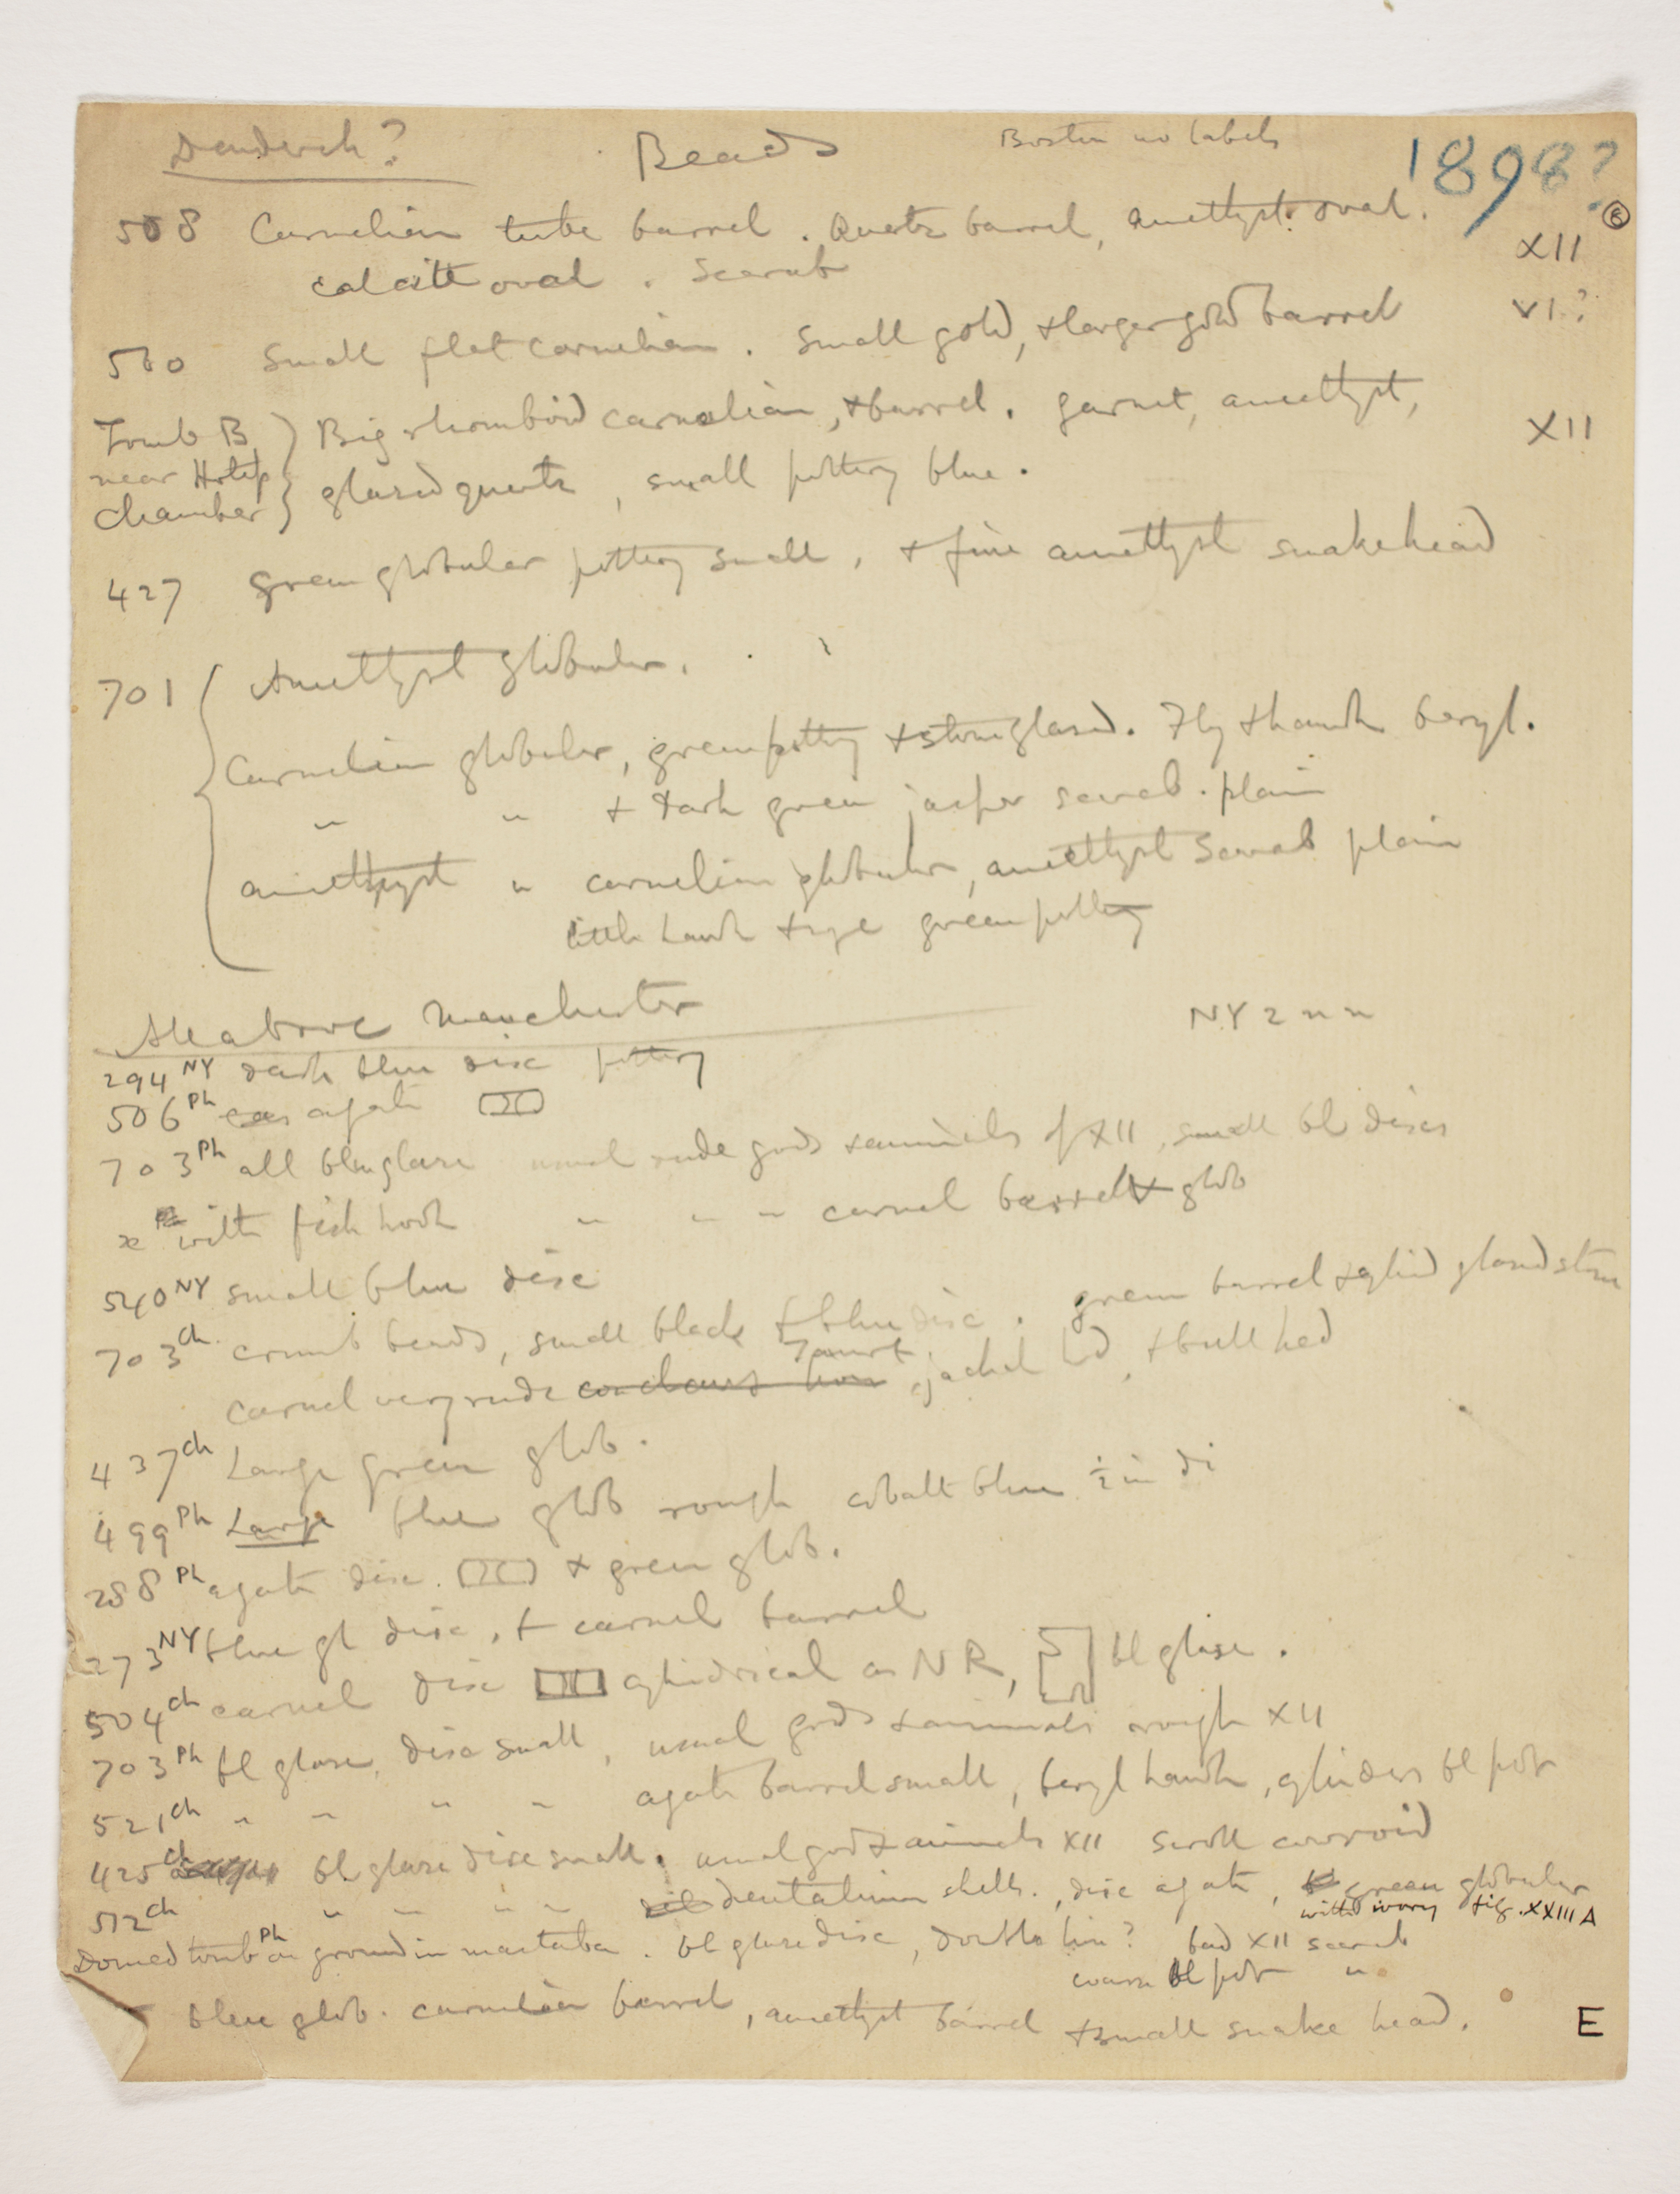 Dendereh? Beads Boston no labels 1898?
508 Carnelian tube barrel. Quartz barrel, amethyst oval. 8
calcite oval. Scarab XII
560 Small flat carnelian. Small gold, + larger gold barrel VI?
Tomb B Big rhomboid carnelian, + barrel. garnet, amethyst, XII
near Hotep glazed quartz, small pottery blue.
chamber
427 green globular pottery small, + fine amethyst snakehead
701 Amethyst globular.
Carnelian globular, green pottery + stone glazed. Fly + hawk beryl.
" " + dark green jasper scarab. plain
amethyst " carnelian globular, amethyst scarab plain
little hawk + eye green pottery
All above Manchester NY 2 " "
294 NY dark blue disc pottery
506 Ph agate
703 Ph all blue glaze usual rude gods + animals of XII, small bl discs
x with fish hook " " " carnel barrel + glob
540 NY small blue disc
703 Ch crumb beads, small black + blue disc. green barrel + cylind glazed stone
carnel very rude Taurt, jackal hd, + bull hed
437 Ch Large green glob.
499 Ph Large blue glob rough cobalt blue ½ in di
288 Ph agate disc. + green glob.
273 NY blue gl disc, + carnel barrel
504 Ch carnel disc cylindrical as NR, bl glaze.
703 Ph bl glaze, disc small, usual gods + animals rough XII
521 Ch " " " " agate barrel small, beryl hawk, cylinders bl pot
425 Ch bl glaze disc small. usual gods + animals XII scroll cowroid
512 Ch " " " " dentalium shells, disc agate, green globular
with ivory fig. XXIII A
Domed tomb Ph on ground in mastaba. bl glaze disc, double lion? bad XII scarab
coarse bl pot "
blue glob. carnelian barrel, amethyst barrel + small snake head. E